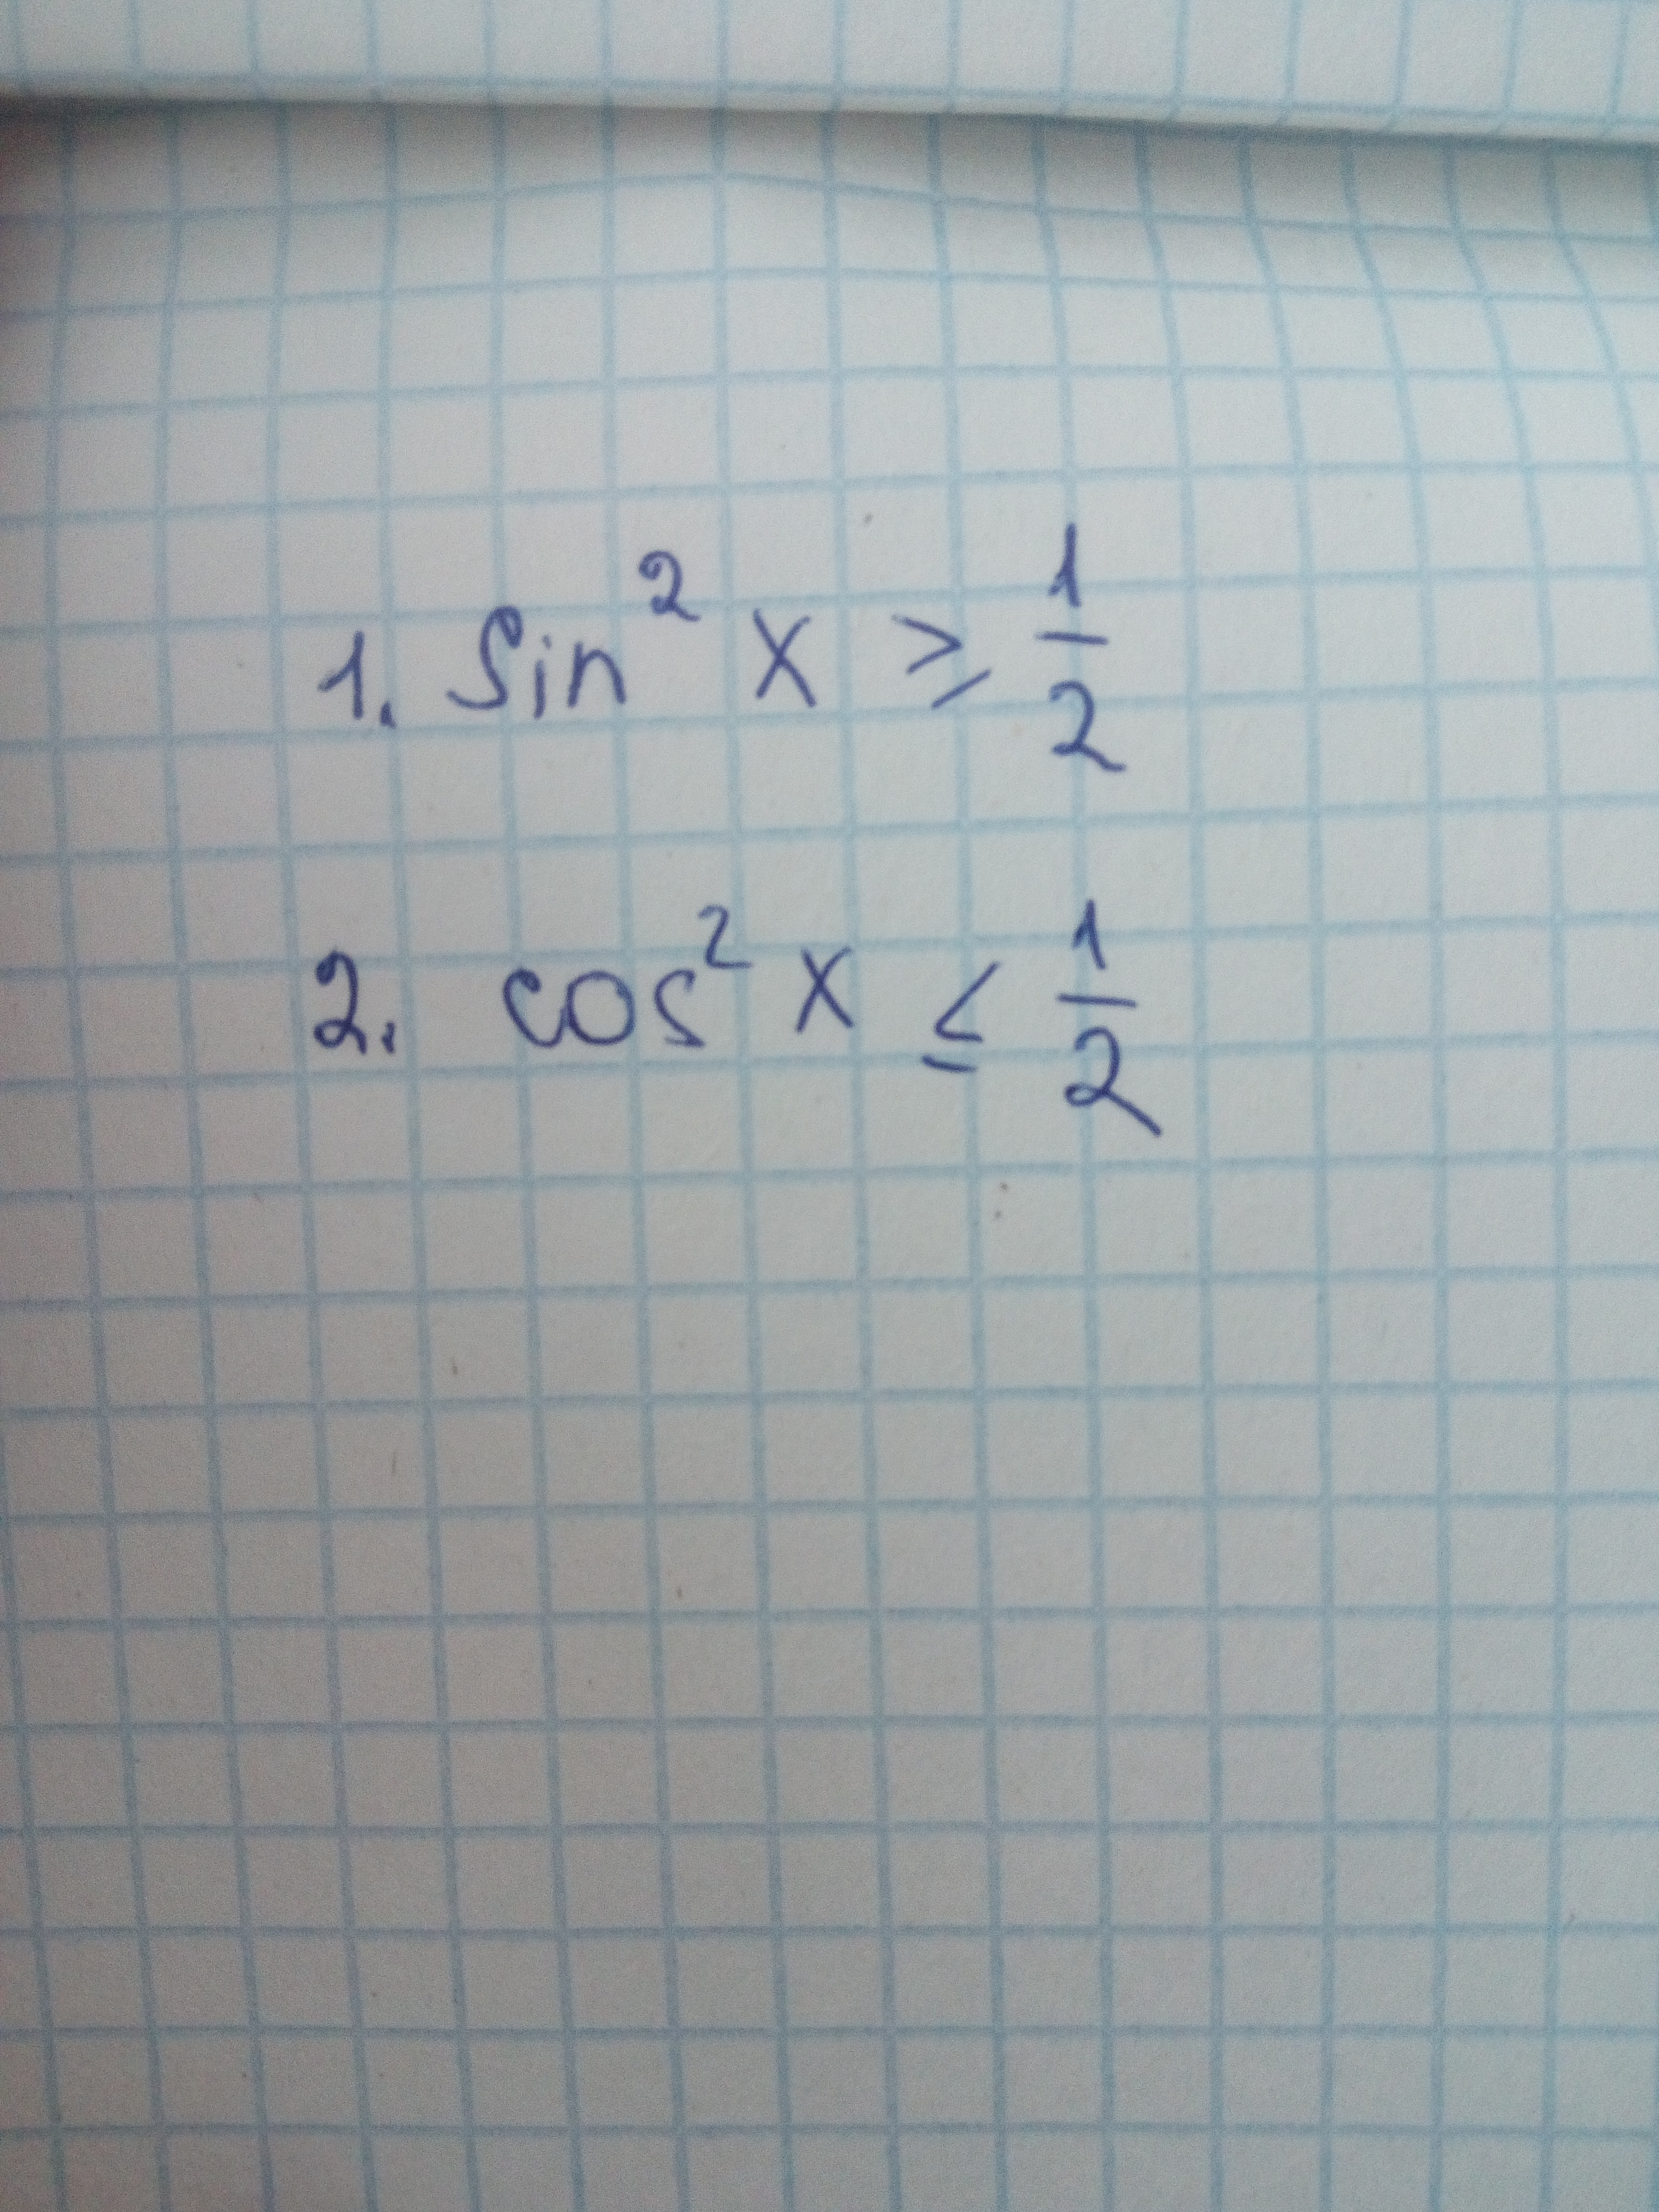 1. sin² x ⩾ 1/2
2. cos² x ≤ 1/2